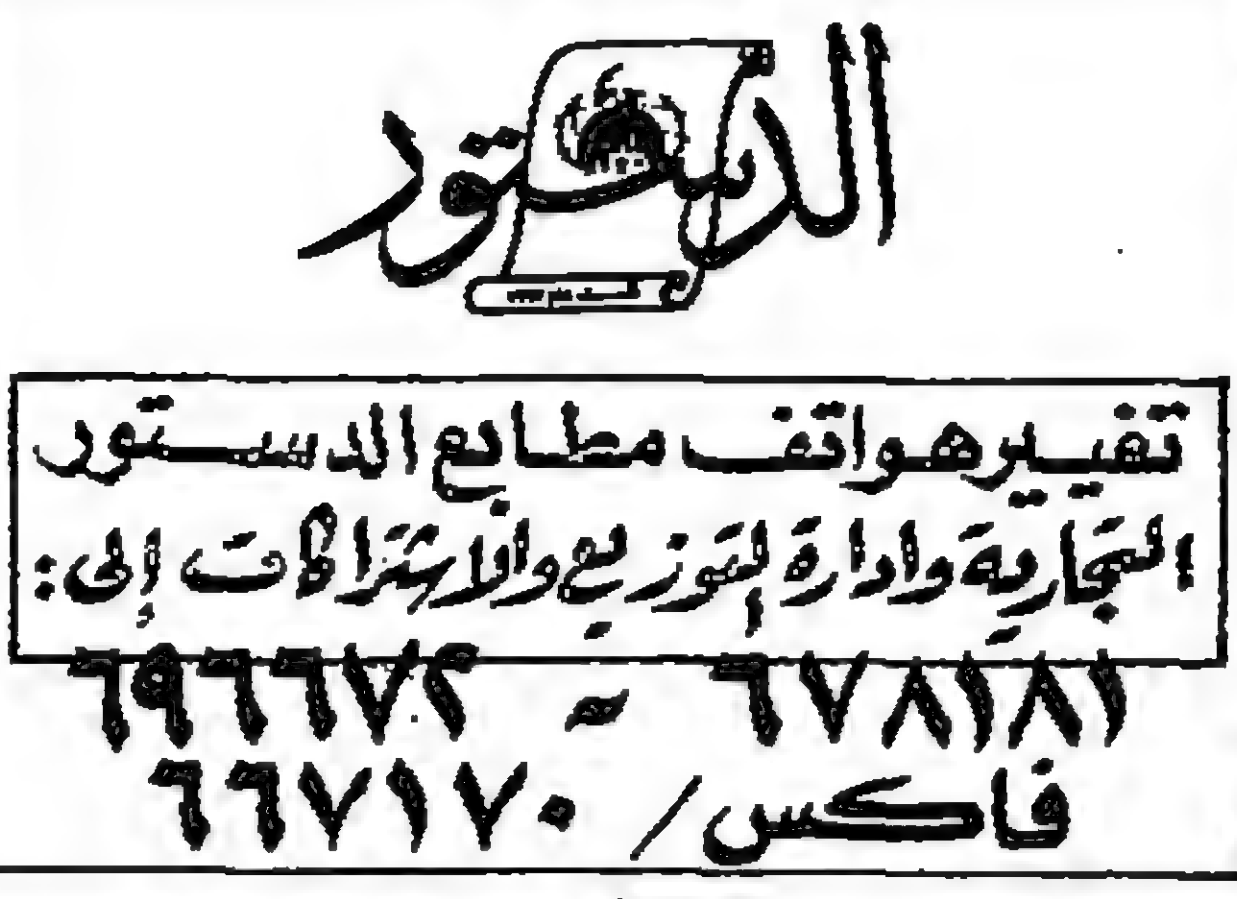 الدستور
تغيير هواتف مطابع الدستور
التجارية وادارة التوزيع والاشتراكات إلى:
٦٧٨١٨١ - ٦٩٦٦٧٢
فاكس / ٦٦٧١٧٠